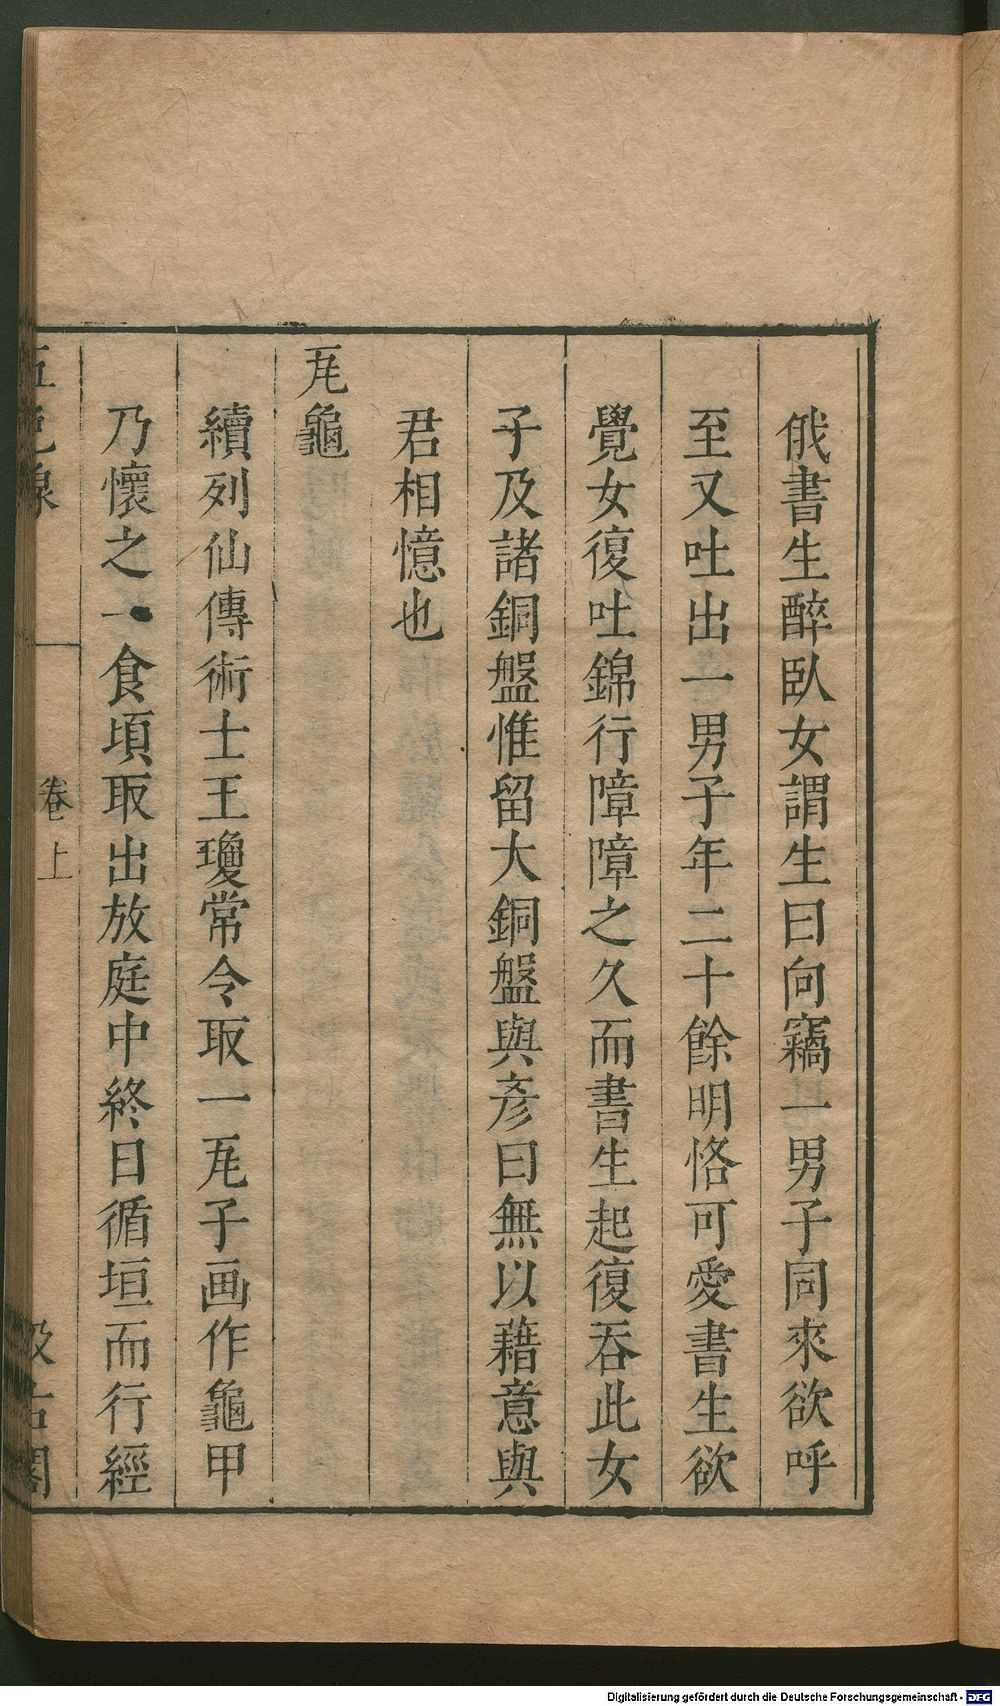 俄書生醉臥女謂生曰向竊一男子同來欲呼
至又吐出一男子年二十餘明恪可愛書生欲
覺女復吐錦行障障之久而書生起復吞此女
子及諸銅盤惟留大銅盤與彥曰無以藉意與
君相憶也
㼚龜
續列仙傳術士王瓊常令取一㼚子画作龜甲
乃懷之一食頃取出放庭中終日循垣而行經
五色線 卷上 汲古閣
Digitalisierung gefördert durch die Deutsche Forschungsgemeinschaft - DFG